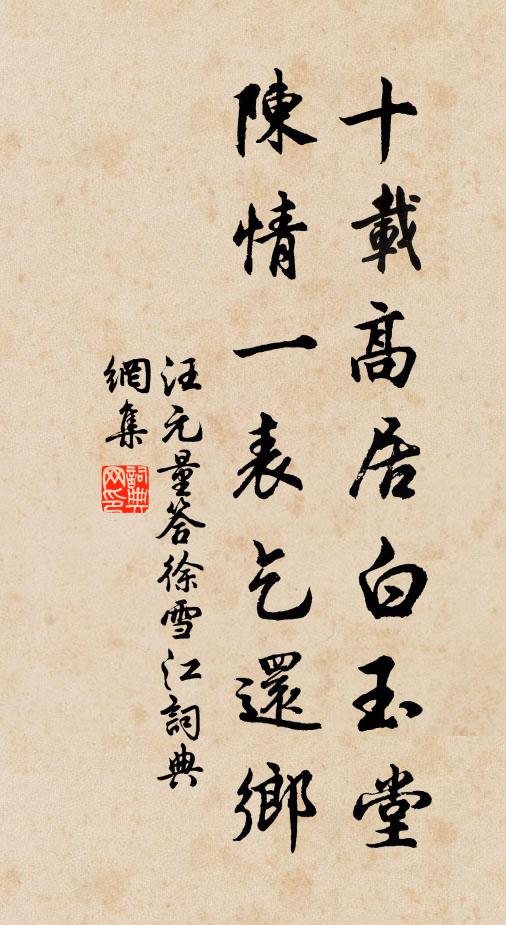 十載高居白玉堂
陳情一表乞還鄉
汪元量答徐雪江詞典
網集
詞典網印